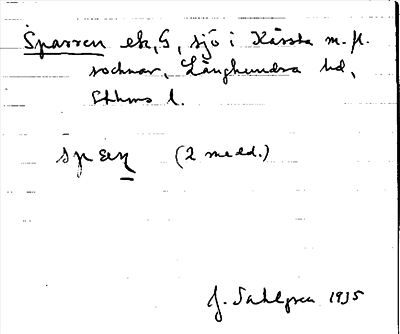 Sparren ek, S, sjö i Kårsta m. fl.
socknar, Långhundra hd,
Sthlms l.
(2 medd.)
J. Sahlgren 1935